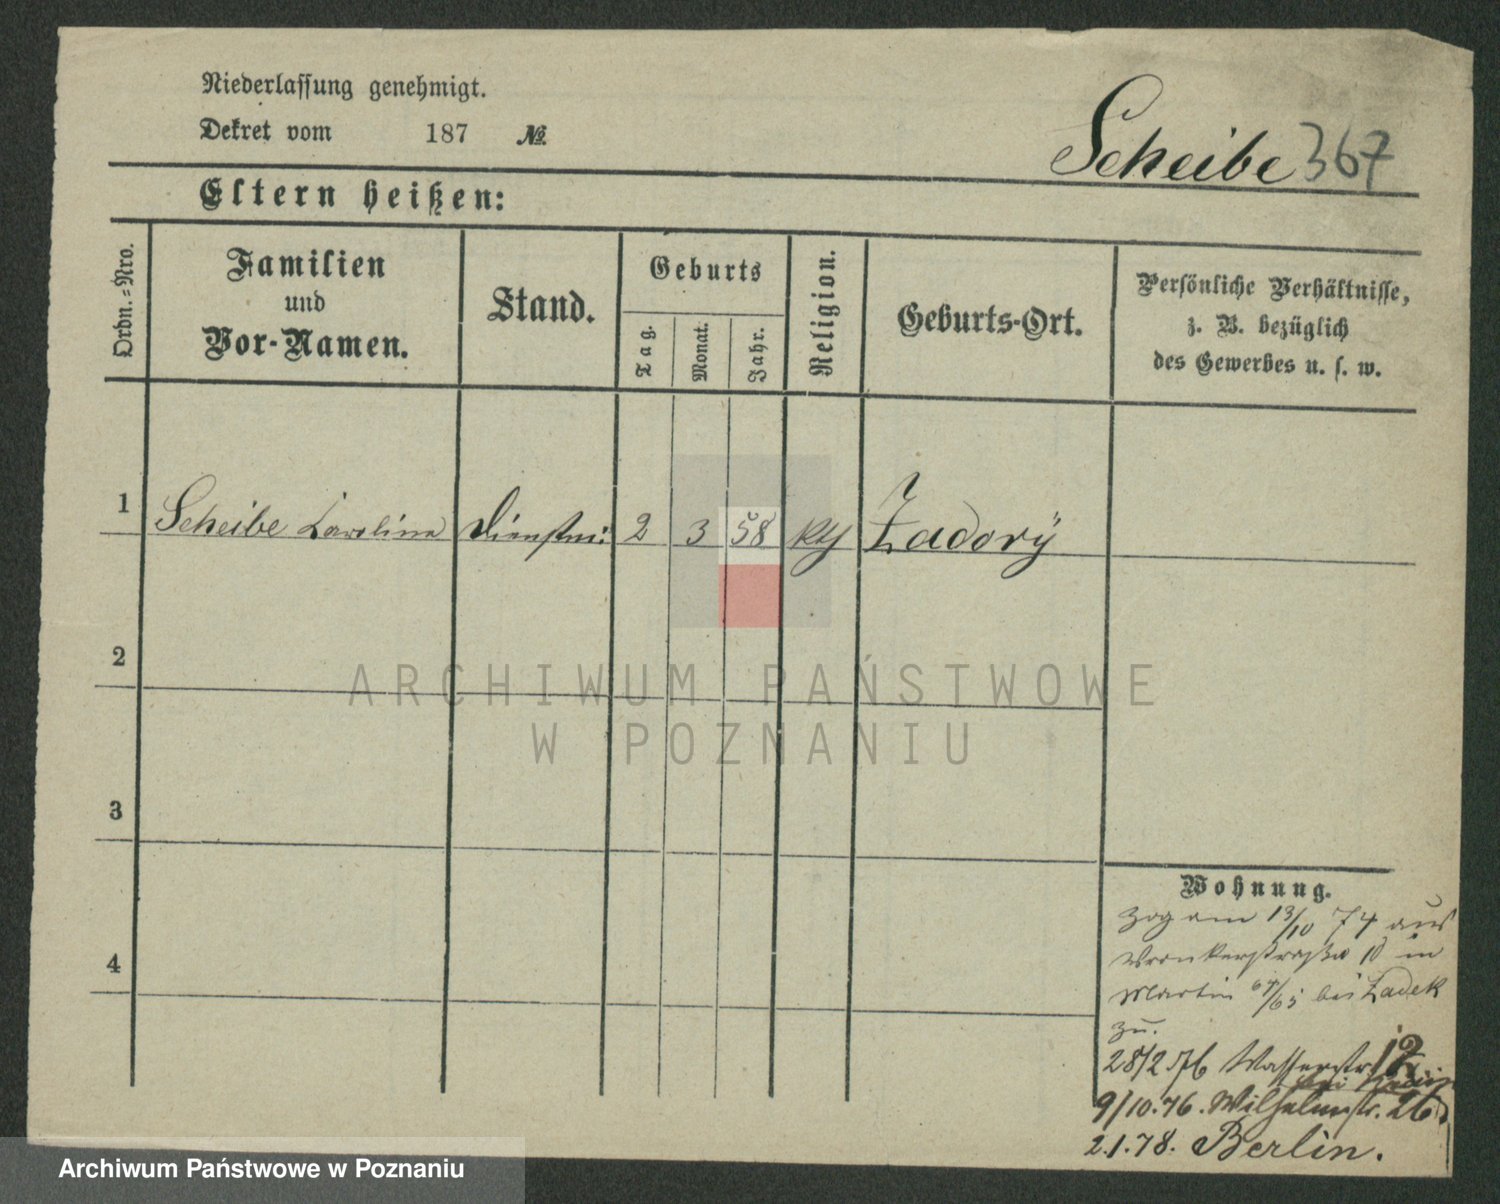 Niederlassung genehmigt.
Dekret vom 187 №.
Scheibe 367
Eltern heißen:
Ordn.=Nro.
Familien
und
Vor-Namen.
Stand.
Geburts
Tag.
Monat.
Jahr.
Religion.
Geburts-Ort.
Persönliche Verhältnisse,
z. B. bezüglich
des Gewerbes u. s. w.
1 Scheibe Karolina Dienstm: 2 3 58 kth Zadory
2
3
4
ARCHIWUM PAŃSTWOWE
W POZNANIU
Wohnung.
Zog am 13/10 74 aus
Wronkerstraße 10 in
Martin 64/65 bei Zadek
zu.
28/2 76 Wasserstr. 12
bei
9/10.76. Wilhelmstr. 26
2.1.78. Berlin.
Archiwum Państwowe w Poznaniu